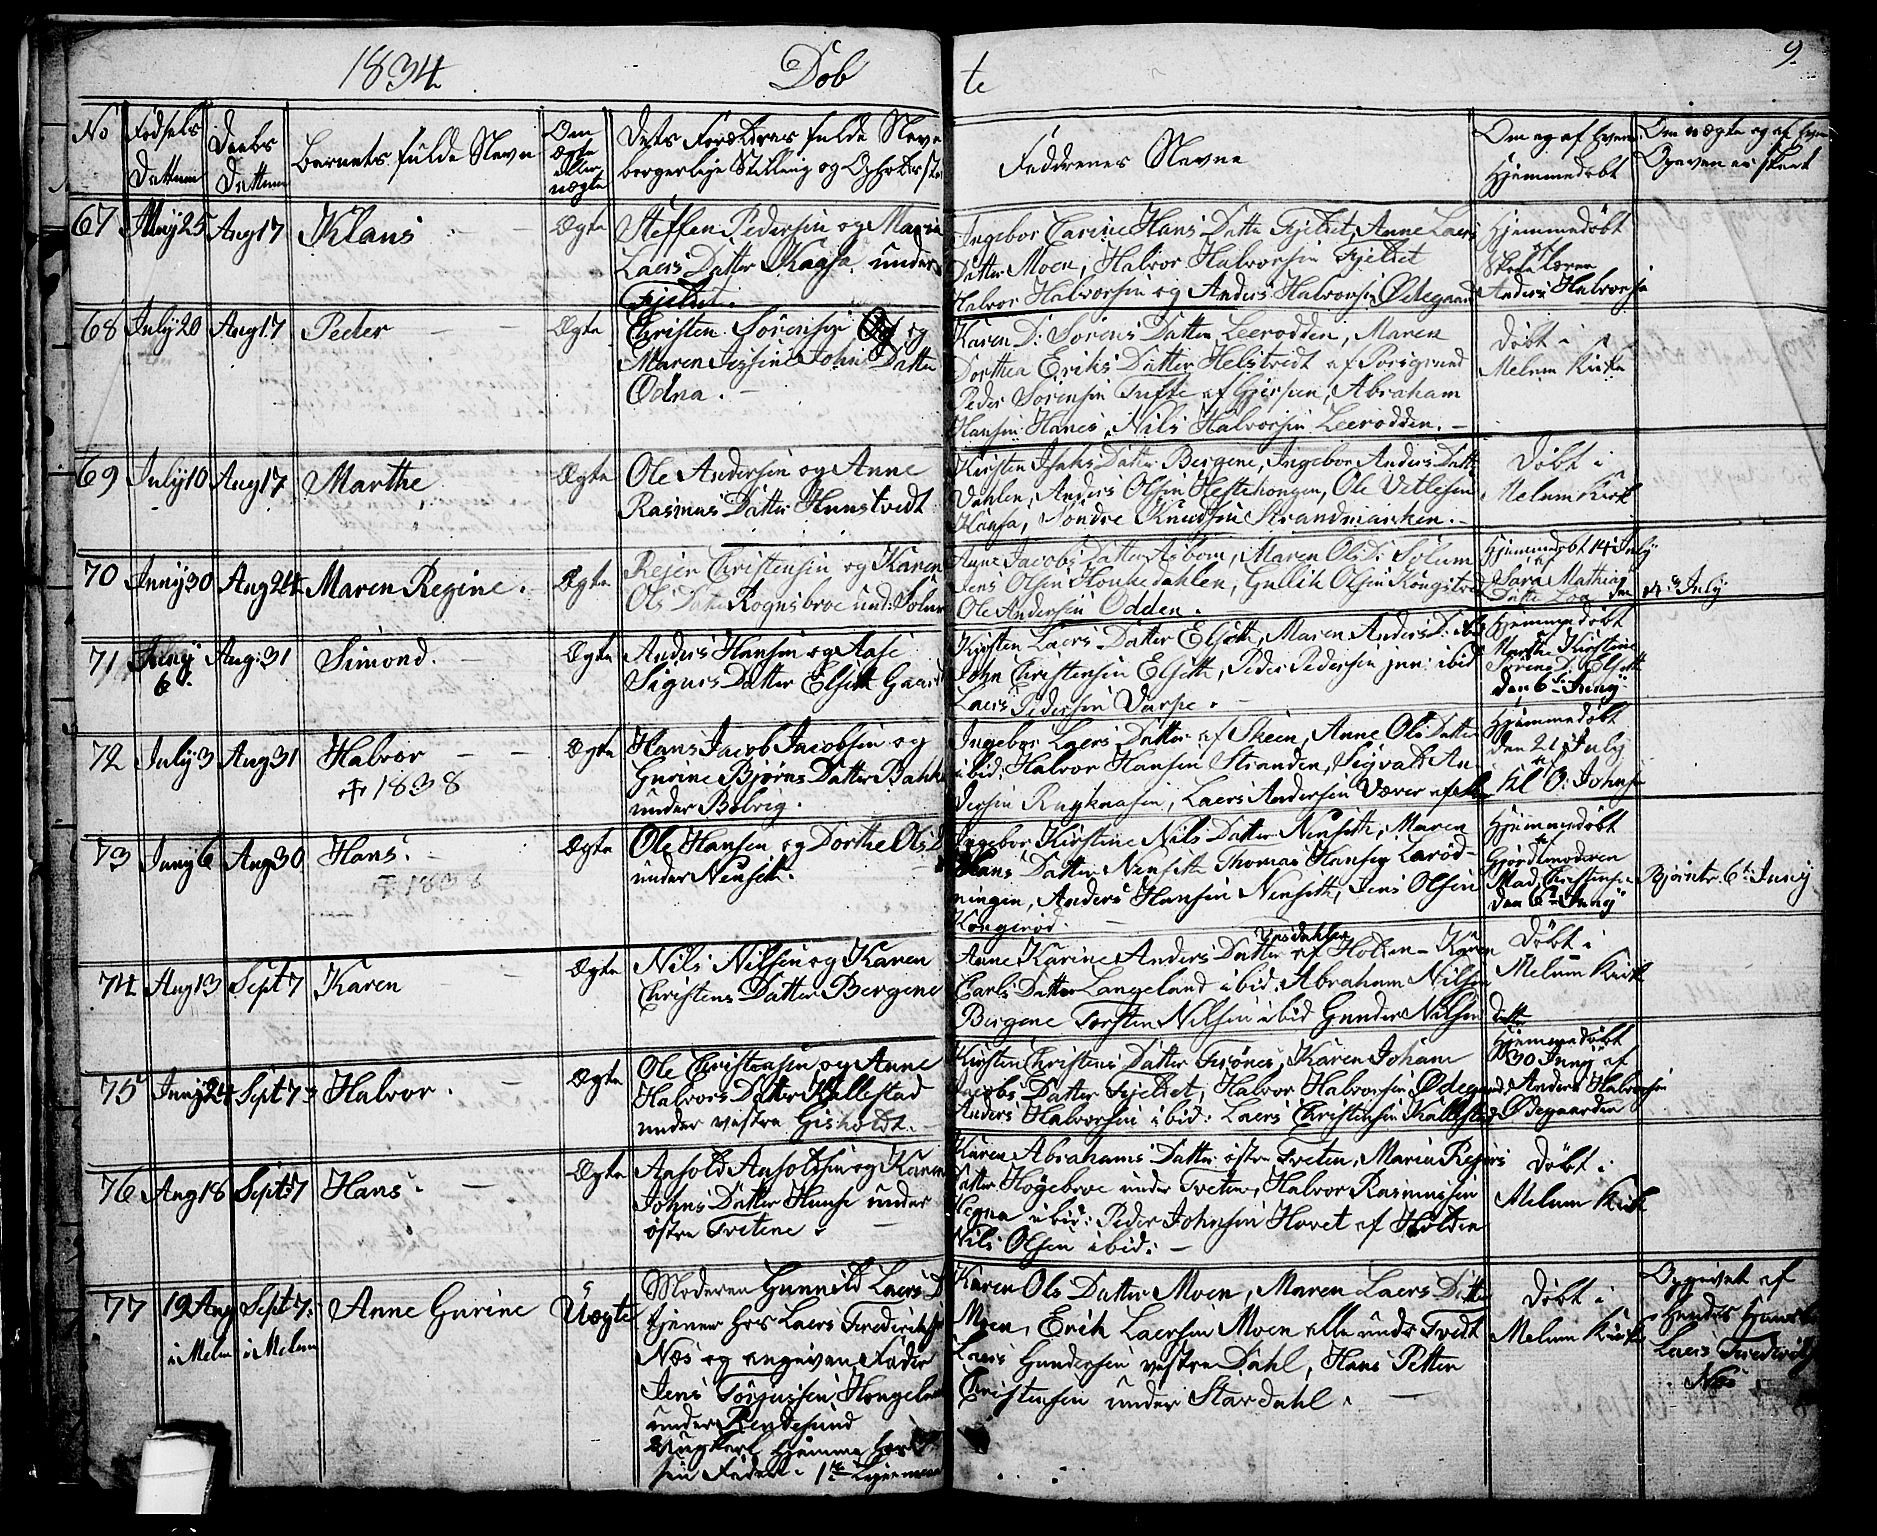 1834 Døb te 9
No Fødsels Dattum Daabs Dattum Barnets fulde Navn Om Ægte eller uægte Dets Forældres fulde Navn borgerlige Stilling og Opholdssted Faddrenes Navne Om og af hvem Hjemmedøbt Om uægte og af hvem Opgaven er skeet
67 May 25 Aug 17 Klaus Ægte
Steffen Pedersen og Maria
Laers Datter Kaasa under
Fjeldet.
Ingebor Carine Hans Datter Fjeldet, Anne Laers
Datter Moen, Halvor Halvorsen Fjeldet
Halvor Halvorsen og Anders Halvorsen Ødegaard
Hjemmedøbt
af
Skolelæreren
Anders Halvorsen
68 July 20 Aug 17 Peder Ægte
Christen Sørensen og
Maren Johns Datter
Odna.
Karen D: Sørens Datter Leerodden, Maren
Dorthea Eriks Datter Helstvedt af Porsgrund
Peder Sørensen Tufte af Gjerpen, Abraham
Hansen Hanes, Nils Halvorsen Leerodden.
Døbt i
Melum Kirke
69 July 10 Aug 17 Marthe Ægte
Ole Andersen og Anne
Rasmus Datter Hunstvedt
Kirsten Isaks Datter Bergene, Ingebor Anders Datter
Dahlen, Anders Olsen Hestehongen, Ole Vetlesen
Haasa, Søndre Knudsen Strandmarken.
Døbt i
Melum Kirk
70 Juny 30 Aug 24 Maren Regine. Ægte
Rejer Christensen og Karen
Ols Datter Rognsbroe und: Solum
Anne Jacobs Datter Aasbom, Maren Ols D: Solum
Jens Olsen Honkedahlen, Gullik Olsen
Ole Andersen Odden.
Hjemmedøbt 14 July
af
Sara Mathias
Datter den 14 July
71 Juny 6. Aug: 31 Simond. Ægte
Anders Hansen og Aase
Sigurs Datter Elseth Gaard
Kirsten Laers Datter Elseth, Maren Anders D:
John Christensen Elseth, Peder Pedersen jun: ibid
Laers Pedersen Varpe.
Hjemmedøbt
Marthe Kirstine
Sørens D: Elseth
den 6te Juny
72 July 3 Aug 31 Halvor Ægte
✝ 1838
Hans Jacob Jacobsen og
Gurine Bjørns Datter Bakke
under Bolvig.
Ingebor Laers Datter af Skeen, Anne Ols Datter
ibid: Halvor Hansen Stranden, Sigvald An
dersen, Laers Andersen
Hjemmedøbt
den 21 July
af
Kl O: Johnsen
73 Juny 6 Aug 30 Hans. Ægte
✝ 1838
Ole Hansen og Dorthe Ols D
under Nenseth.
Ingebor Kirstine Nils Datter Nenseth, Maren
Hans Datter Nenseth Thomas Hansen Larød-
ningen, Anders Hansen Nenseth, Jens Olsen
Kongerød.
Hjemmedøbt
af
Gjordemoderen
Mad. Christensen Bjørntv. 6te Juny
den 6te Juny
74 Aug 13 Sept 7 Karen Ægte
Nils Nilsen og Karen
Christens Datter Bergene
Anne Karine Anders Datter af Holden - Karen
Carls Datter Langeland ibid: Abraham Nilsen
Bergene Torsten Nilsen ibid Gunder Nilsen Datter
Døbt i
Melum Kirk
75 Juny 24 Sept 7 Halvor. Ægte
Ole Christensen og Anne
Halvors Datter Kallestad
under vestre Gisholdt.
Kirsten Christens Datter, Karen Johanne
Jacobs Datter Fjeldet, Halvor Halvorsen Ødegaard
Anders Halvorsen ibid: Laers Christensen Kallestad
Hjemmedøbt
30 Juny af
Anders Halvorsen
Ødegaarden
76 Aug 18 Sept: 7 Hans. Ægte
Aasold Aasoldsen og Karen
Johns Datter under
østre Tvetene.
Karen Abrahams Datter østre Tveten, Maria Rejers
Datter Høgebroe under Tveten, Halvor Rasmusen
ibid: Peder Johnsen Hovet af Holden
Nils Olsen ibid:
Døbt i
Melum Kirk
77 19 Aug i Melum Sept 7. i Melum Anne Gurine Uægte
Moderen Gunnild Laers D
tjener hos Laers Frederiksen
Næs og angiven Fader
Jens Torjussen
under
Ungkarl hjemme hos
sin Fader. 1te Lejermaal
Karen Ols Datter Moen, Maren Laers Datter
Moen, Erik Laersen Moen alle under Tvedt
Laers Gundersen vestre Dahl, Hans Petter
Christensen under Stardahl.
Døbt i
Melum Kirk
Opgivet af
hendes Huusbond
Laers Frederiks
Næs